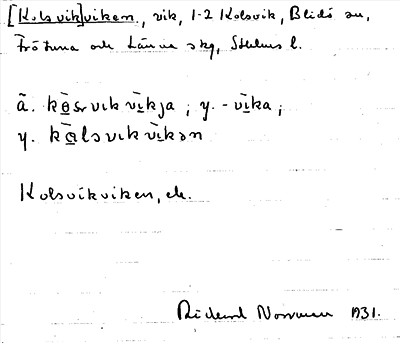 [Kolsvik]viken, vik, 1-2 Kolsvik, Blidö sn,
Frötuna och Länna skg, Sthlms l.
ä. kọ̄srvikvīkja ; y. -vīka ;
y. kọ̄lsvikvīkən
Kolsvikviken, ek.
Rickard Norrman 1931.